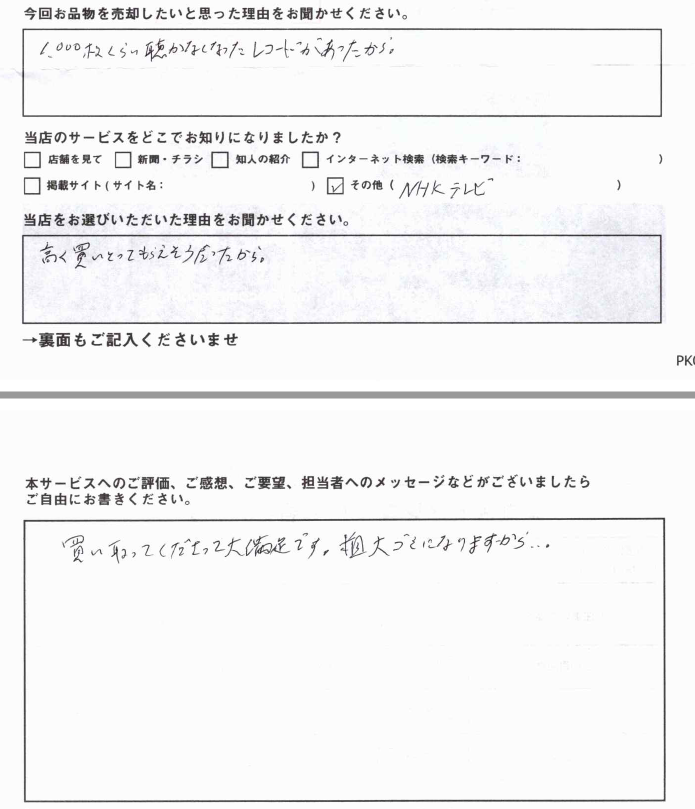 今回お品物を売却したいと思った理由をお聞かせください。
1,000枚くらい聴かなくなったレコードがあったから。
当店のサービスをどこでお知りになりましたか？
□ 店舗を見て □ 新聞・チラシ □ 知人の紹介 □ インターネット検索（検索キーワード： ）
□ 掲載サイト（サイト名： ） ☑ その他（ NHKテレビ ）
当店をお選びいただいた理由をお聞かせください。
高く買いとってもらえそうだったから。
→裏面もご記入くださいませ
PK
本サービスへのご評価、ご感想、ご要望、担当者へのメッセージなどがございましたら
ご自由にお書きください。
買い取ってくださって大満足です。粗大ゴミになりますから...。